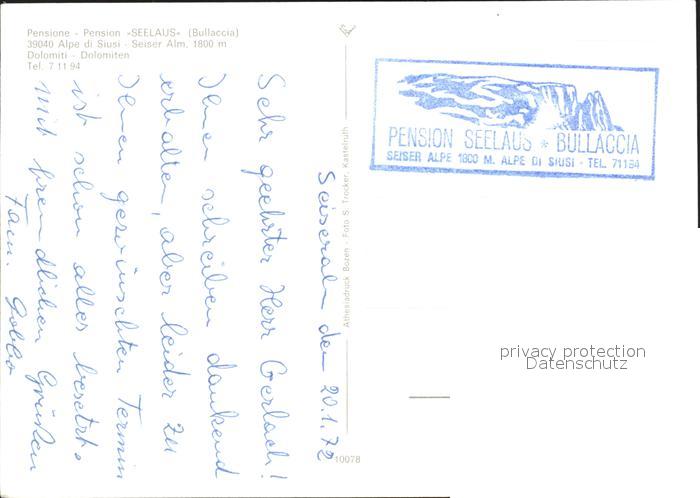 Pensione - Pension »SEELAUS« (Bullaccia)
39040 Alpe di Siusi - Seiser Alm, 1800 m
Dolomiti - Dolomiten
Tel. 7 11 94
PENSION SEELAUS * BULLACCIA
SEISER ALPE 1800 M. ALPE DI SIUSI - TEL. 71194
Seiseralm den 20.1.72
Sehr geehrter Herr Gerlach!
Ihnen schreiben dankend
erhalten, aber leider zu
Ihnen gewünschten Termin
ist schon alles besetzt.
Mit freundlichen Grüßen
Fam. Goller
Athesiadruck Bozen - Foto S. Trocker, Kastelruth
10078
privacy protection
Datenschutz